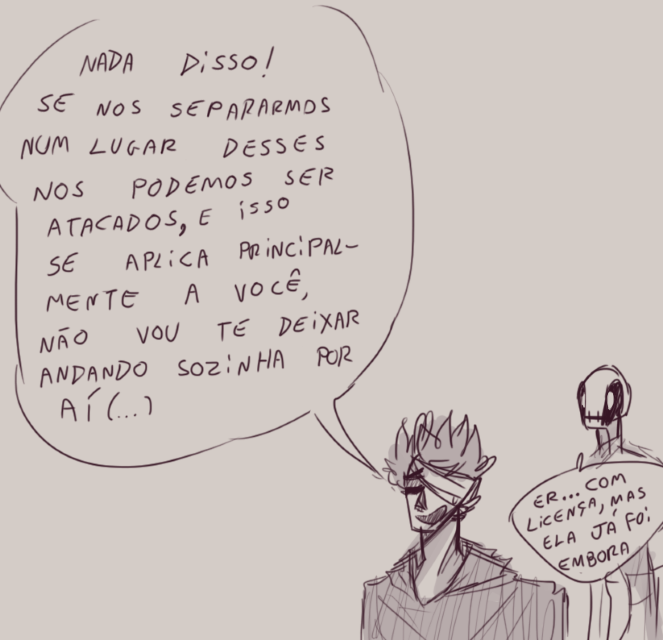 NADA DISSO!
SE NOS SEPARARMOS
NUM LUGAR DESSES
NOS PODEMOS SER
ATACADOS, E ISSO
SE APLICA PRINCIPAL-
MENTE A VOCÊ,
NÃO VOU TE DEIXAR
ANDANDO SOZINHA POR
AÍ (...)
ER... COM
LICENÇA, MAS
ELA JÁ FOI
EMBORA